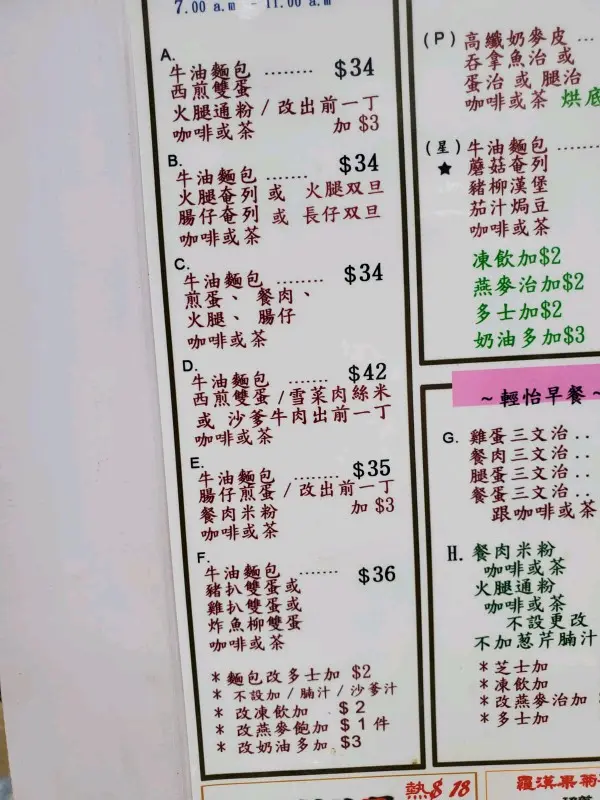 7.00 a.m - 11.00 a.m
A.
牛油麵包 ........ $34
西煎雙蛋
火腿通粉 / 改出前一丁
咖啡或茶 加 $3
B.
牛油麵包 ....... $34
火腿奄列 或 火腿双旦
腸仔奄列 或 長仔双旦
咖啡或茶
C.
牛油麵包 ........ $34
煎蛋、餐肉、
火腿、腸仔
咖啡或茶
D.
牛油麵包 ....... $42
西煎雙蛋 / 雪菜肉絲米
或 沙爹牛肉出前一丁
咖啡或茶
E.
牛油麵包 ........ $35
腸仔煎蛋 / 改出前一丁
餐肉米粉 加 $3
咖啡或茶
F.
牛油麵包 ....... $36
豬扒雙蛋或
雞扒雙蛋或
炸魚柳雙蛋
咖啡或茶
* 麵包改多士加 $2
* 不設加 / 腩汁 / 沙爹汁
* 改凍飲加 $2
* 改燕麥飽加 $1件
* 改奶油多加 $3
(P) 高纖奶麥皮 ...
吞拿魚治 或
蛋治 或 腿治
咖啡或茶 烘底
(星) 牛油麵包 .......
★ 蘑菇奄列
豬柳漢堡
茄汁焗豆
咖啡或茶
凍飲加$2
燕麥治加$2
多士加$2
奶油多加$3
~ 輕怡早餐 ~
G. 雞蛋三文治 ..
餐肉三文治 ..
腿蛋三文治 ..
餐蛋三文治 ..
跟咖啡或茶
H. 餐肉米粉
咖啡或茶
火腿通粉
咖啡或茶
不設更改
不加葱芹腩汁
* 芝士加
* 凍飲加
* 改燕麥治加
* 多士加
熱$ 18
羅漢果菊